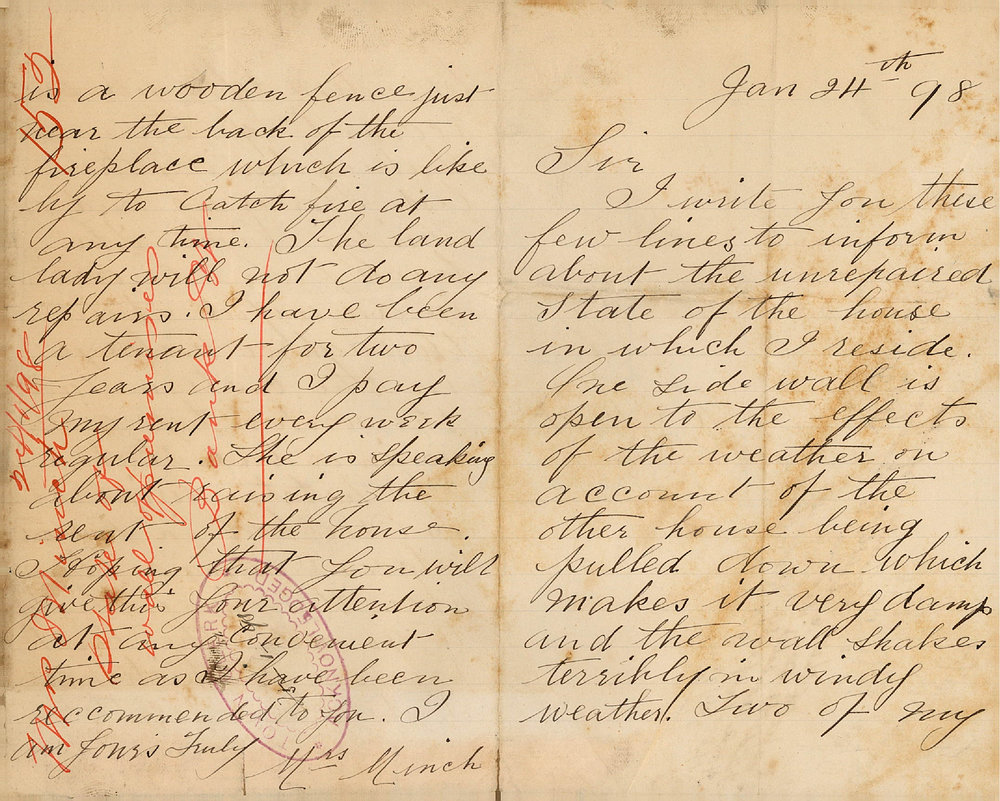 Jan 24th 98
Sir
I write you these
few lines to inform
about the unrepaired
State of the house
in which I reside.
One side wall is
open to the effects
of the weather on
account of the
other house being
pulled down which
makes it very damp
and the wall shakes
terribly in windy
weather. Two of my
is a wooden fence just
near the back of the
fireplace which is like
ly to Catch fire at
any time. The land
lady will not do any
repairs. I have been
a tenant for two
years and I pay
my rent every week
regular. She is speaking
about raising the
rent of the house.
Hoping that you will
give this your attention
at any convenient
time as I have been
reccommended to you. I
am yours Truly
Mrs Minch
152
Mrs Minch
State of
wall of
24/1/98
ACKNOWLEDGED